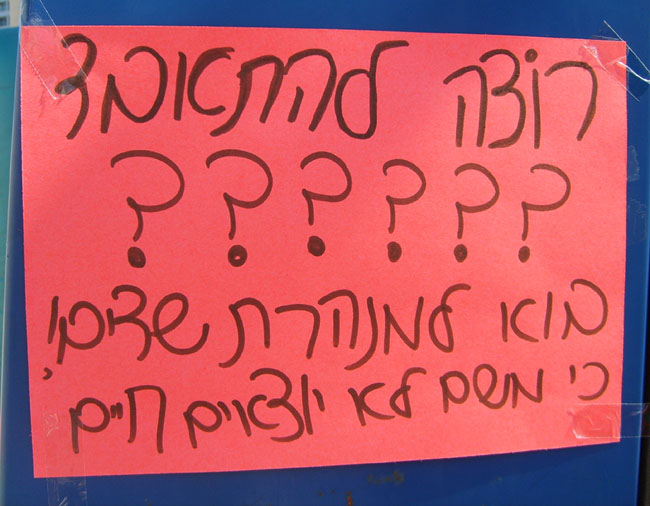 רוצה להתאבד
??????
בוא למנהרת שדים!
כי משם לא יוצאים חיים